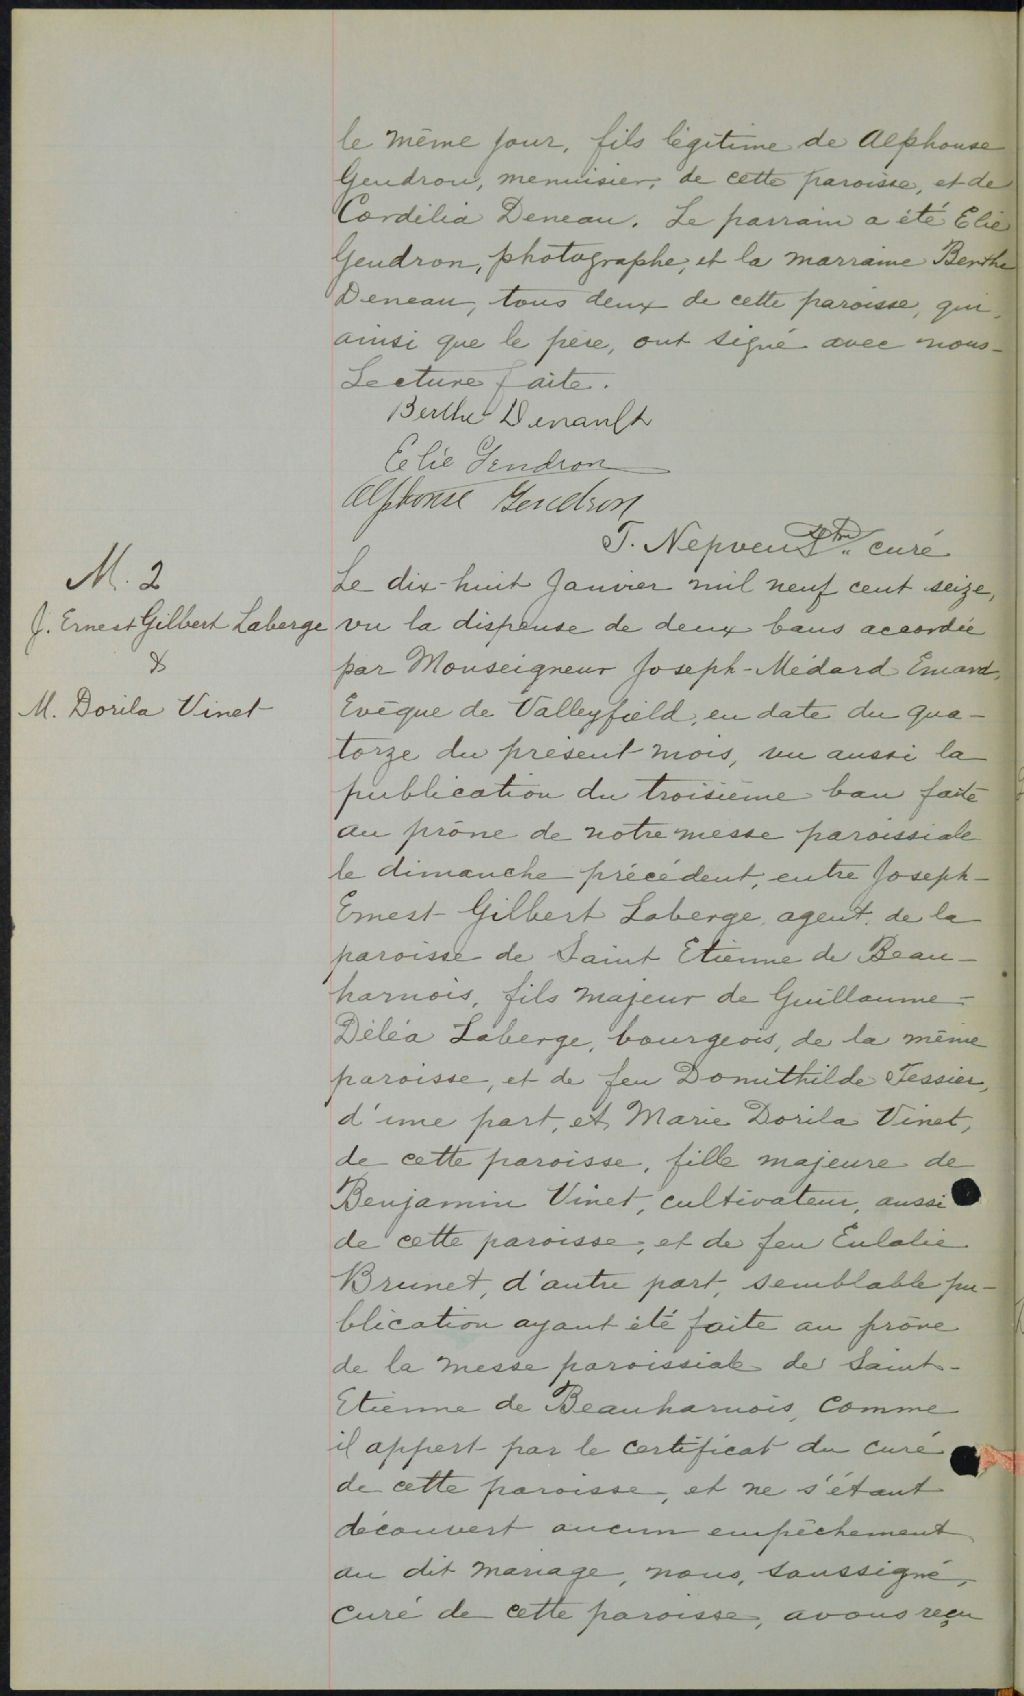 le même jour, fils légitime de Alphonse
Gendron, menuisier, de cette paroisse, et de
Cordélia Deneau. Le parrain a été Elie
Gendron, photographe, et la marraine Berthe
Deneau, tous deux de cette paroisse, qui,
ainsi que le père, ont signé avec nous-
Lecture faite.
Berthe Denault
Elie Gendron
Alphonse Gendron
T. Nepveu Ptre curé
M. 2
J. Ernest Gilbert Laberge
&
M. Dorila Vinet
Le dix-huit Janvier mil neuf cent seize,
vu la dispense de deux bans accordée
par Monseigneur Joseph-Médard Emard,
Evêque de Valleyfield, en date du qua-
torze du présent mois, vu aussi la
publication du troisième ban faite
au prône de notre messe paroissiale
le dimanche précédent, entre Joseph-
Ernest-Gilbert Laberge, agent, de la
paroisse de Saint Etienne de Beau-
harnois, fils majeur de Guillaume-
Déléa Laberge, bourgeois, de la même
paroisse, et de feu Domithilde Tessier,
d'une part, et Marie Dorila Vinet,
de cette paroisse, fille majeure de
Benjamin Vinet, cultivateur, aussi
de cette paroisse, et de feu Eulalie
Brunet, d'autre part, semblable pu-
blication ayant été faite au prône
de la messe paroissiale de Saint-
Etienne de Beauharnois, comme
il appert par le certificat du curé
de cette paroisse, et ne s'étant
découvert aucun empêchement
au dit mariage, nous, soussigné,
curé de cette paroisse, avons reçu